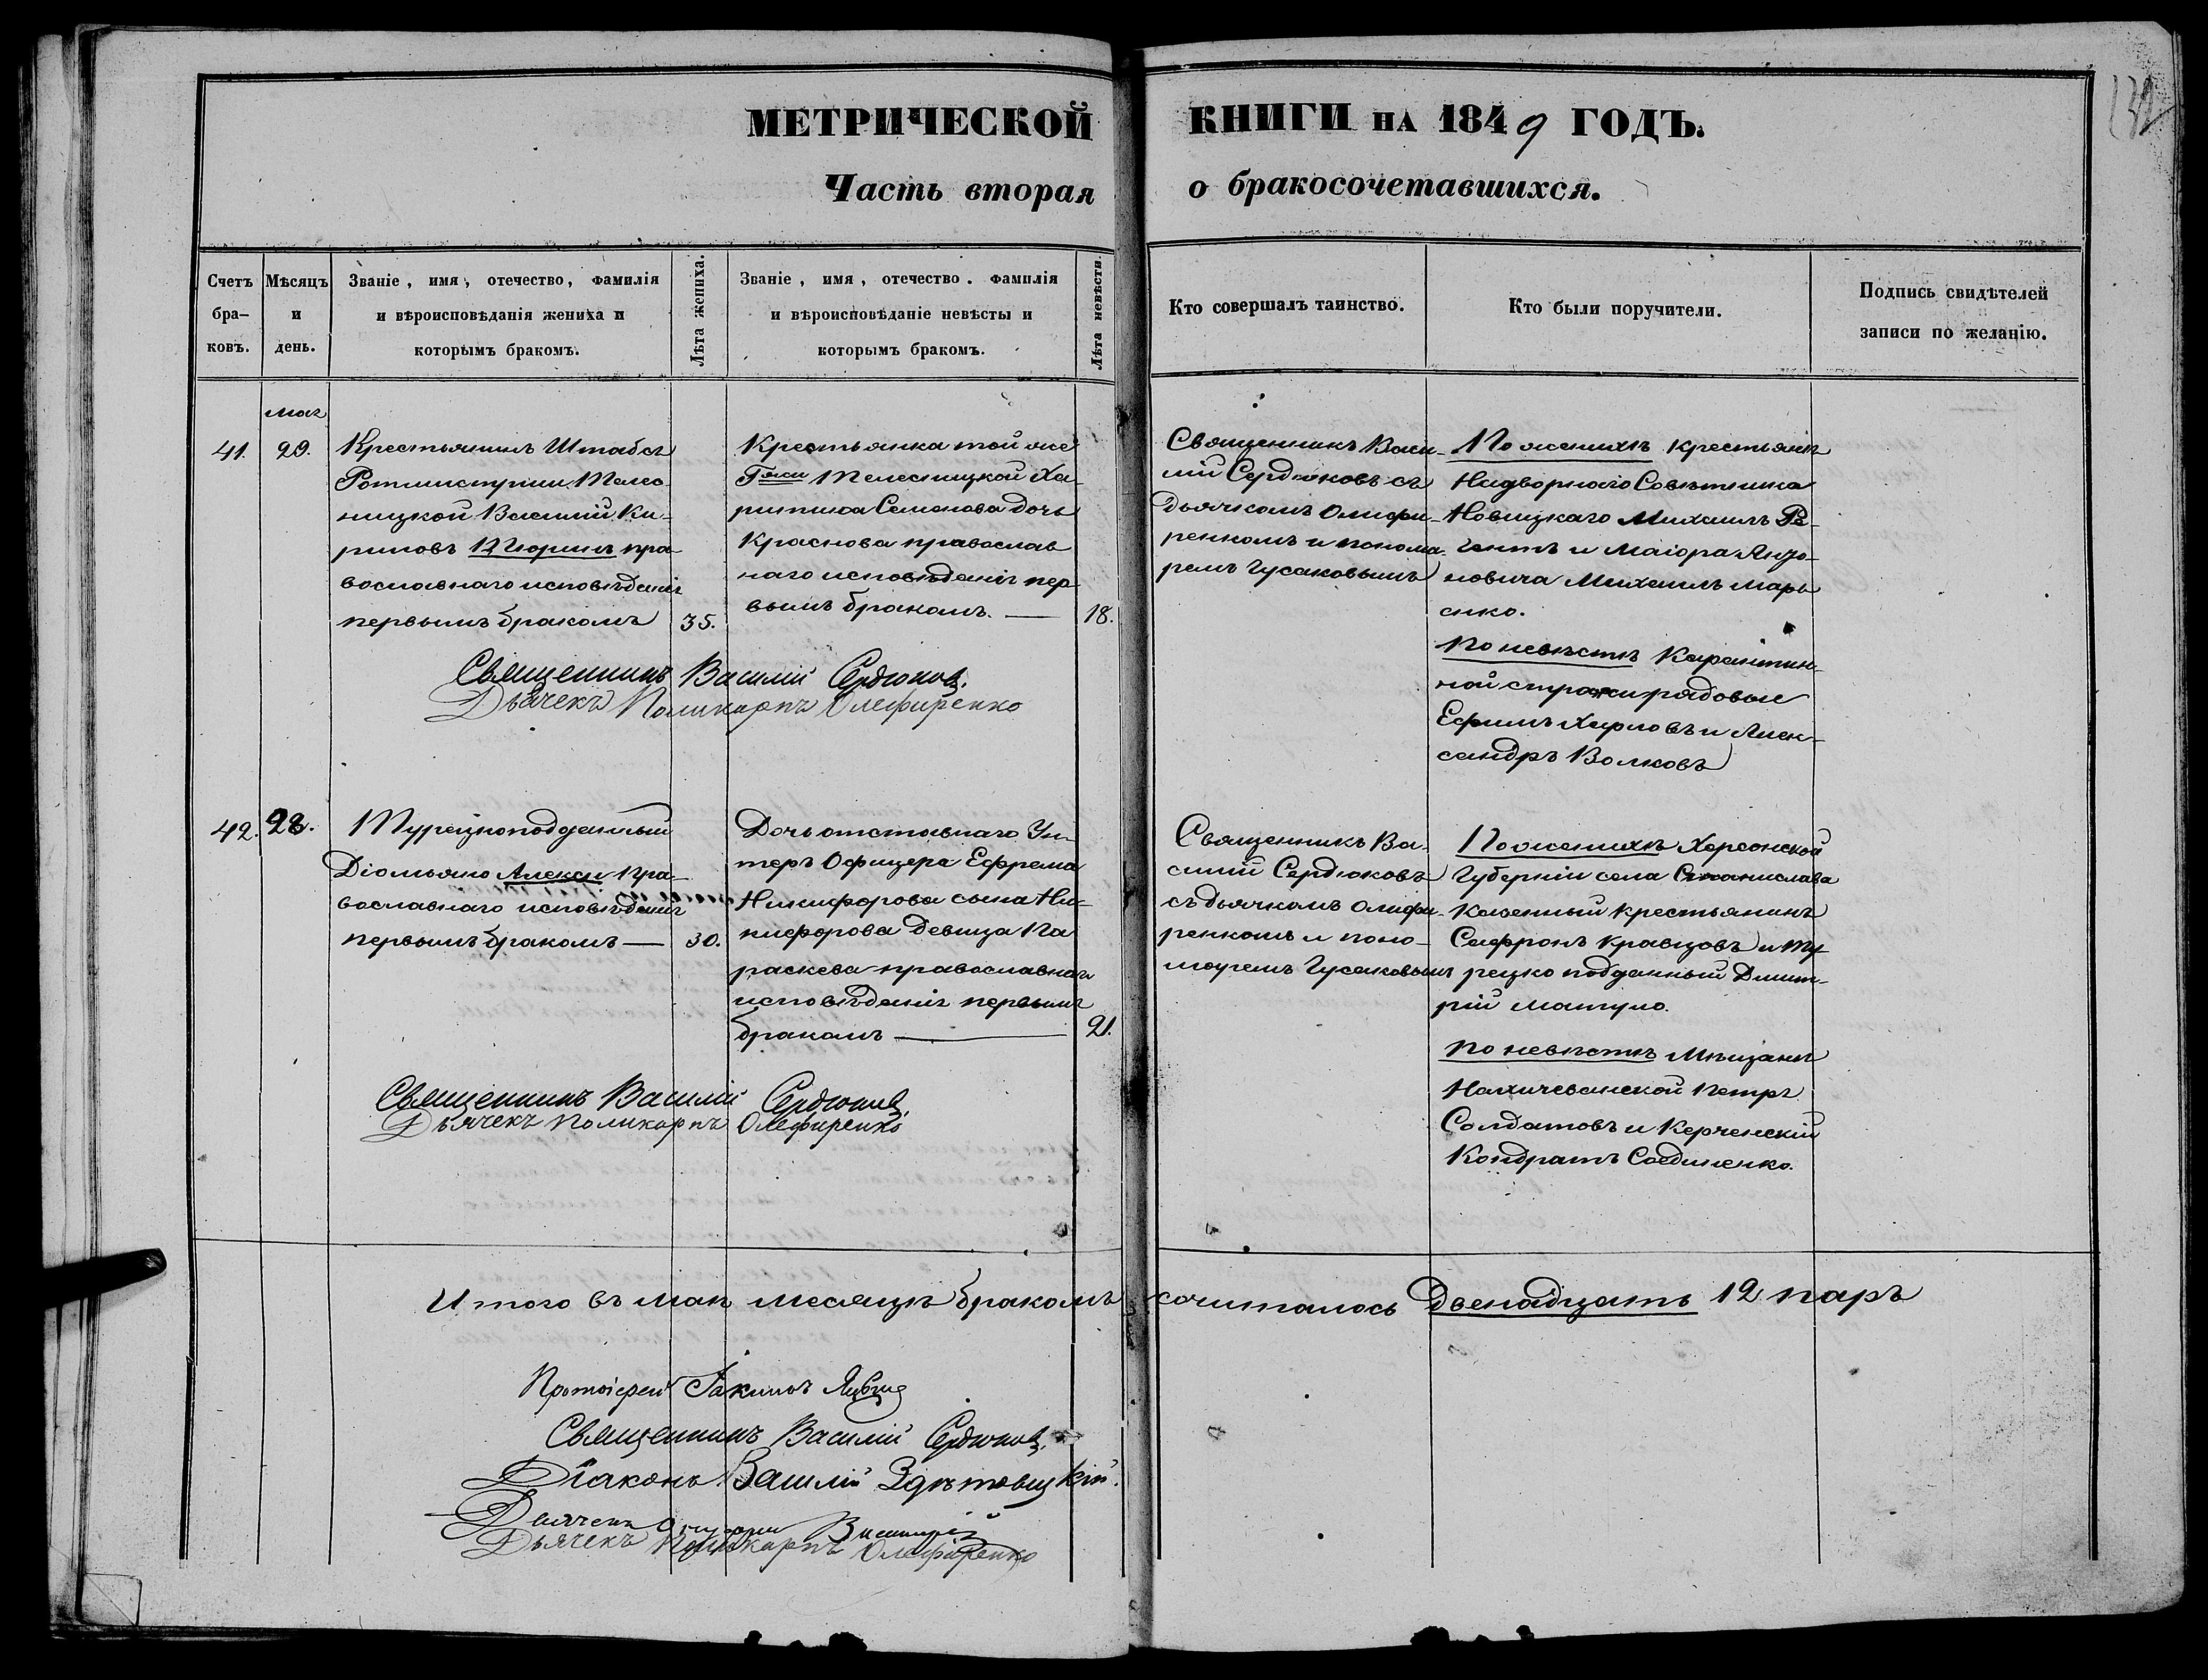 МЕТРИЧЕСКОЙ КНИГИ НА 1849 ГОДЪ.
Часть вторая о бракосочетавшихся.
Счетъ бра-ковъ.
Мѣсяцъ и день.
Званіе, имя, отечество, фамилія
и вѣроисповѣданія жениха и
которымъ бракомъ.
Лѣта жениха.
Званіе, имя, отечество. фамилія
и вѣроисповѣданіе невѣсты и
которымъ бракомъ.
Лѣта невѣсты.
Кто совершалъ таинство.
Кто были поручители.
Подпись свидѣтелей
записи по желанію.
мая
41.
29.
Крестьянинъ Штабсъ
Ротмистрши Телес-
ницкой Василій Ки-
риловъ Тюринъ пра-
вославнаго исповѣданія
первымъ бракомъ
35.
Крестьянка той же
Гжи Телесницкой Ха-
ритина Семенова дочь
Краснова православ
наго исповѣданія пер-
вымъ бракомъ. —
18.
Священникъ Васи-
лій Сердюковъ съ
дьячкомъ Олифи-
ренкомъ и понома-
ремъ Гусаковымъ
По женихѣ крестьяне
Надворнаго Совѣтника
Новицкаго Михаилъ
и Маіора
Михаилъ Марь
енко.
По невѣстѣ Карантин-
ной стражи рядовые
Ефимъ Харловъ и Алек-
сандръ Волковъ
Священникъ Василій Сердюковъ.
Дьячекъ Поликарпъ Олефиренко
42.
28.
Турецкоподданный
Діомьяно Алекси пра-
вославнаго исповѣданія
первымъ бракомъ —
30.
Дочь отставнаго Ун-
теръ Офицера Ефрема
Никифорова сына Ни-
кифорова девица Па
раскева православнаго
исповѣданія первымъ
бракомъ —
21.
Священникъ Ва-
силій Сердюковъ
съ дьячкомъ Олифи-
ренкомъ и поно-
моремъ Гусаковымъ
По женихѣ Херсонской
Губерніи села Станислава
Казенный крестьянинъ
Сафронъ Кравцовъ и Ту-
рецко подданный Дмит-
рій Матуло.
По невѣстѣ Мѣщане
Нахичеванской Петръ
Солдатовъ и Керченскій
Кондратъ Соединенко.
Священникъ Василій Сердюковъ.
Дьячекъ Поликарпъ Олефиренко
Итого въ маѣ месяцѣ бракомъ сочиталось Двенадцать 12 паръ
Протоіерей Іакимъ
Священникъ Василій Сердюковъ.
Діаконъ Василій
Дьячекъ
Дьячекъ Поликарпъ Олефиренко